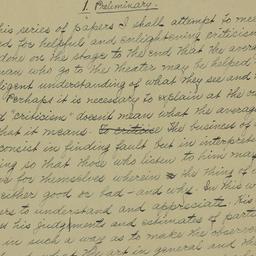 1. Preliminary.
his series of papers I shall attempt to mee
ed for helpful and enlightening criticism
done on the stage to the end that the avera
man who go to the theater may be helped
ligent understanding of what they see and
Perhaps it is necessary to explain at the o
d "criticism" doesnt mean what the average
that it means. To criticise the business of
consist in finding fault but in interpret
ing so that those who listen to him may
ve for themselves wherein the thing of
either good or bad – and why. In this w
ers to understand and appreciate. His
es his judgments and estimates of partic
in such a way as to make the observe
what the art in general and the